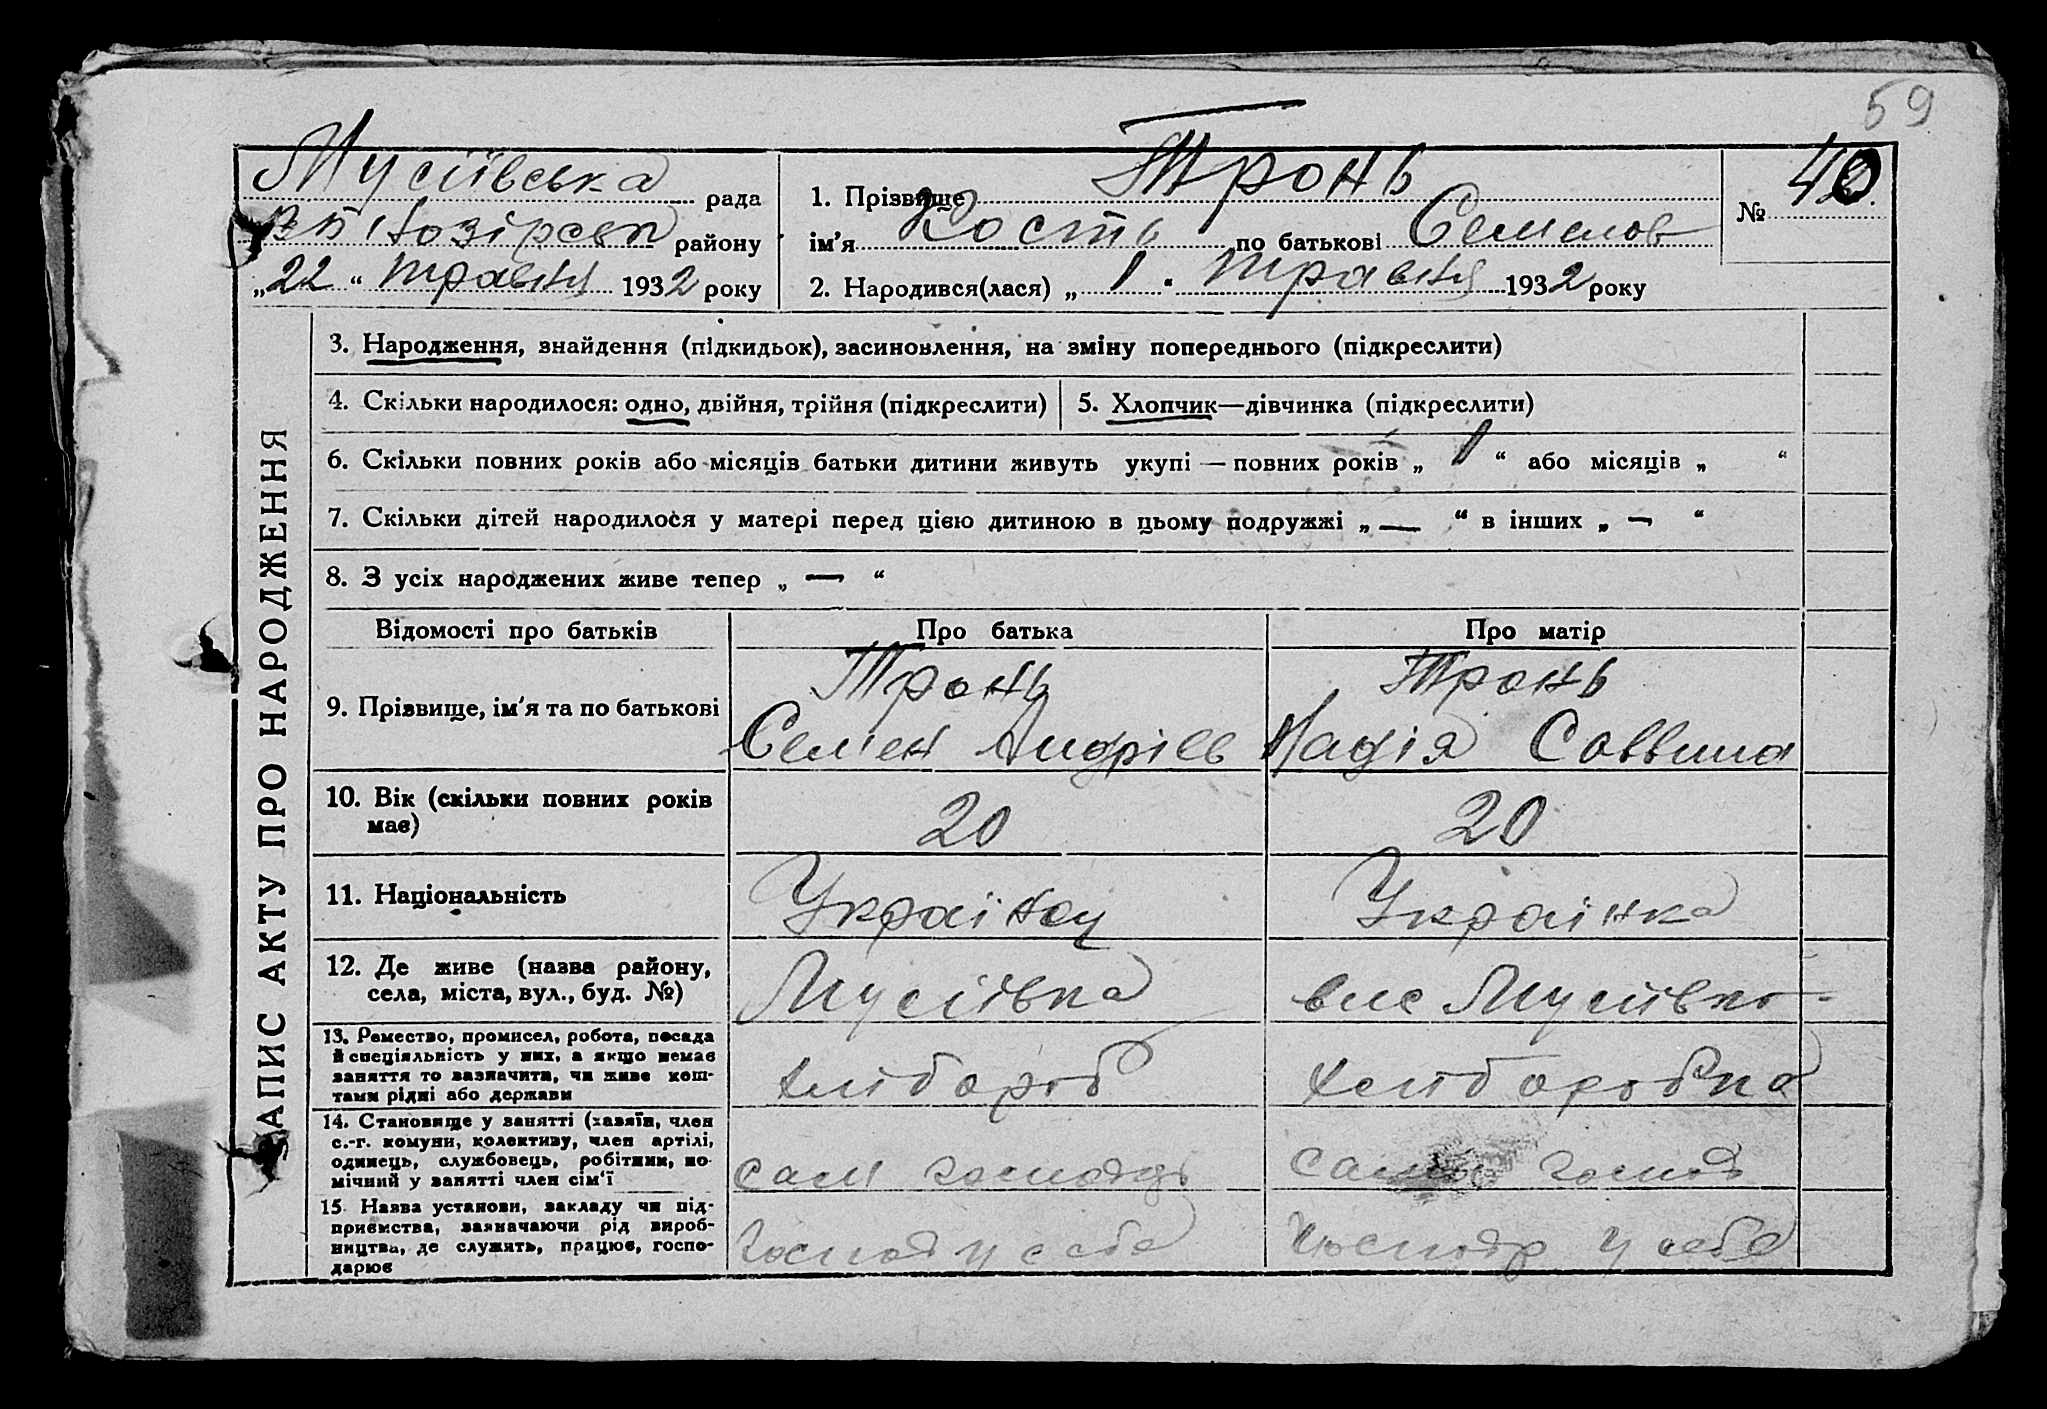 59
Мусіївська рада
району
„22“ травня 1932 року
1. Прізвище Тронь
ім’я Кость по батькові Семенов
№ 40
2. Народився(лася) „1“ травня 1932 року
ЗАПИС АКТУ ПРО НАРОДЖЕННЯ
3. Народження, знайдення (підкидьок), засиновлення, на зміну попереднього (підкреслити)
4. Скільки народилося: одно, двійня, трійня (підкреслити)
5. Хлопчик—дівчинка (підкреслити)
6. Скільки повних років або місяців батьки дитини живуть укупі — повних років „ 1 “ або місяців „ “
7. Скільки дітей народилося у матері перед цією дитиною в цьому подружжі „ — “ в інших „ — “
8. З усіх народжених живе тепер „ — “
Відомості про батьків
Про батька
Про матір
9. Прізвище, ім’я та по батькові
Тронь
Семен Андріев
Тронь
Надія Саввина
10. Вік (скільки повних років
має)
20
20
11. Національність
Українец
Українка
12. Де живе (назва району,
села, міста, вул., буд. №)
Мусіївка
Мусіівка
13. Ремество, промисел, робота, посада
й спеціяльність у них, а якщо немає
заняття то зазначити, чи живе кош-
тами рідні або держави
хлібороб
хліборобка
14. Становище у занятті (хазяїн, член
с.-г. комуни, колективу, член артілі,
одинець, службовець, робітник, по-
мічний у занятті член сім’ї
сам господар
сама господ
15. Назва установи, закладу чи під-
приємства, зазначаючи рід вироб-
ництва, де служить, працює, госпо-
дарює
господ у себе
господр у себе